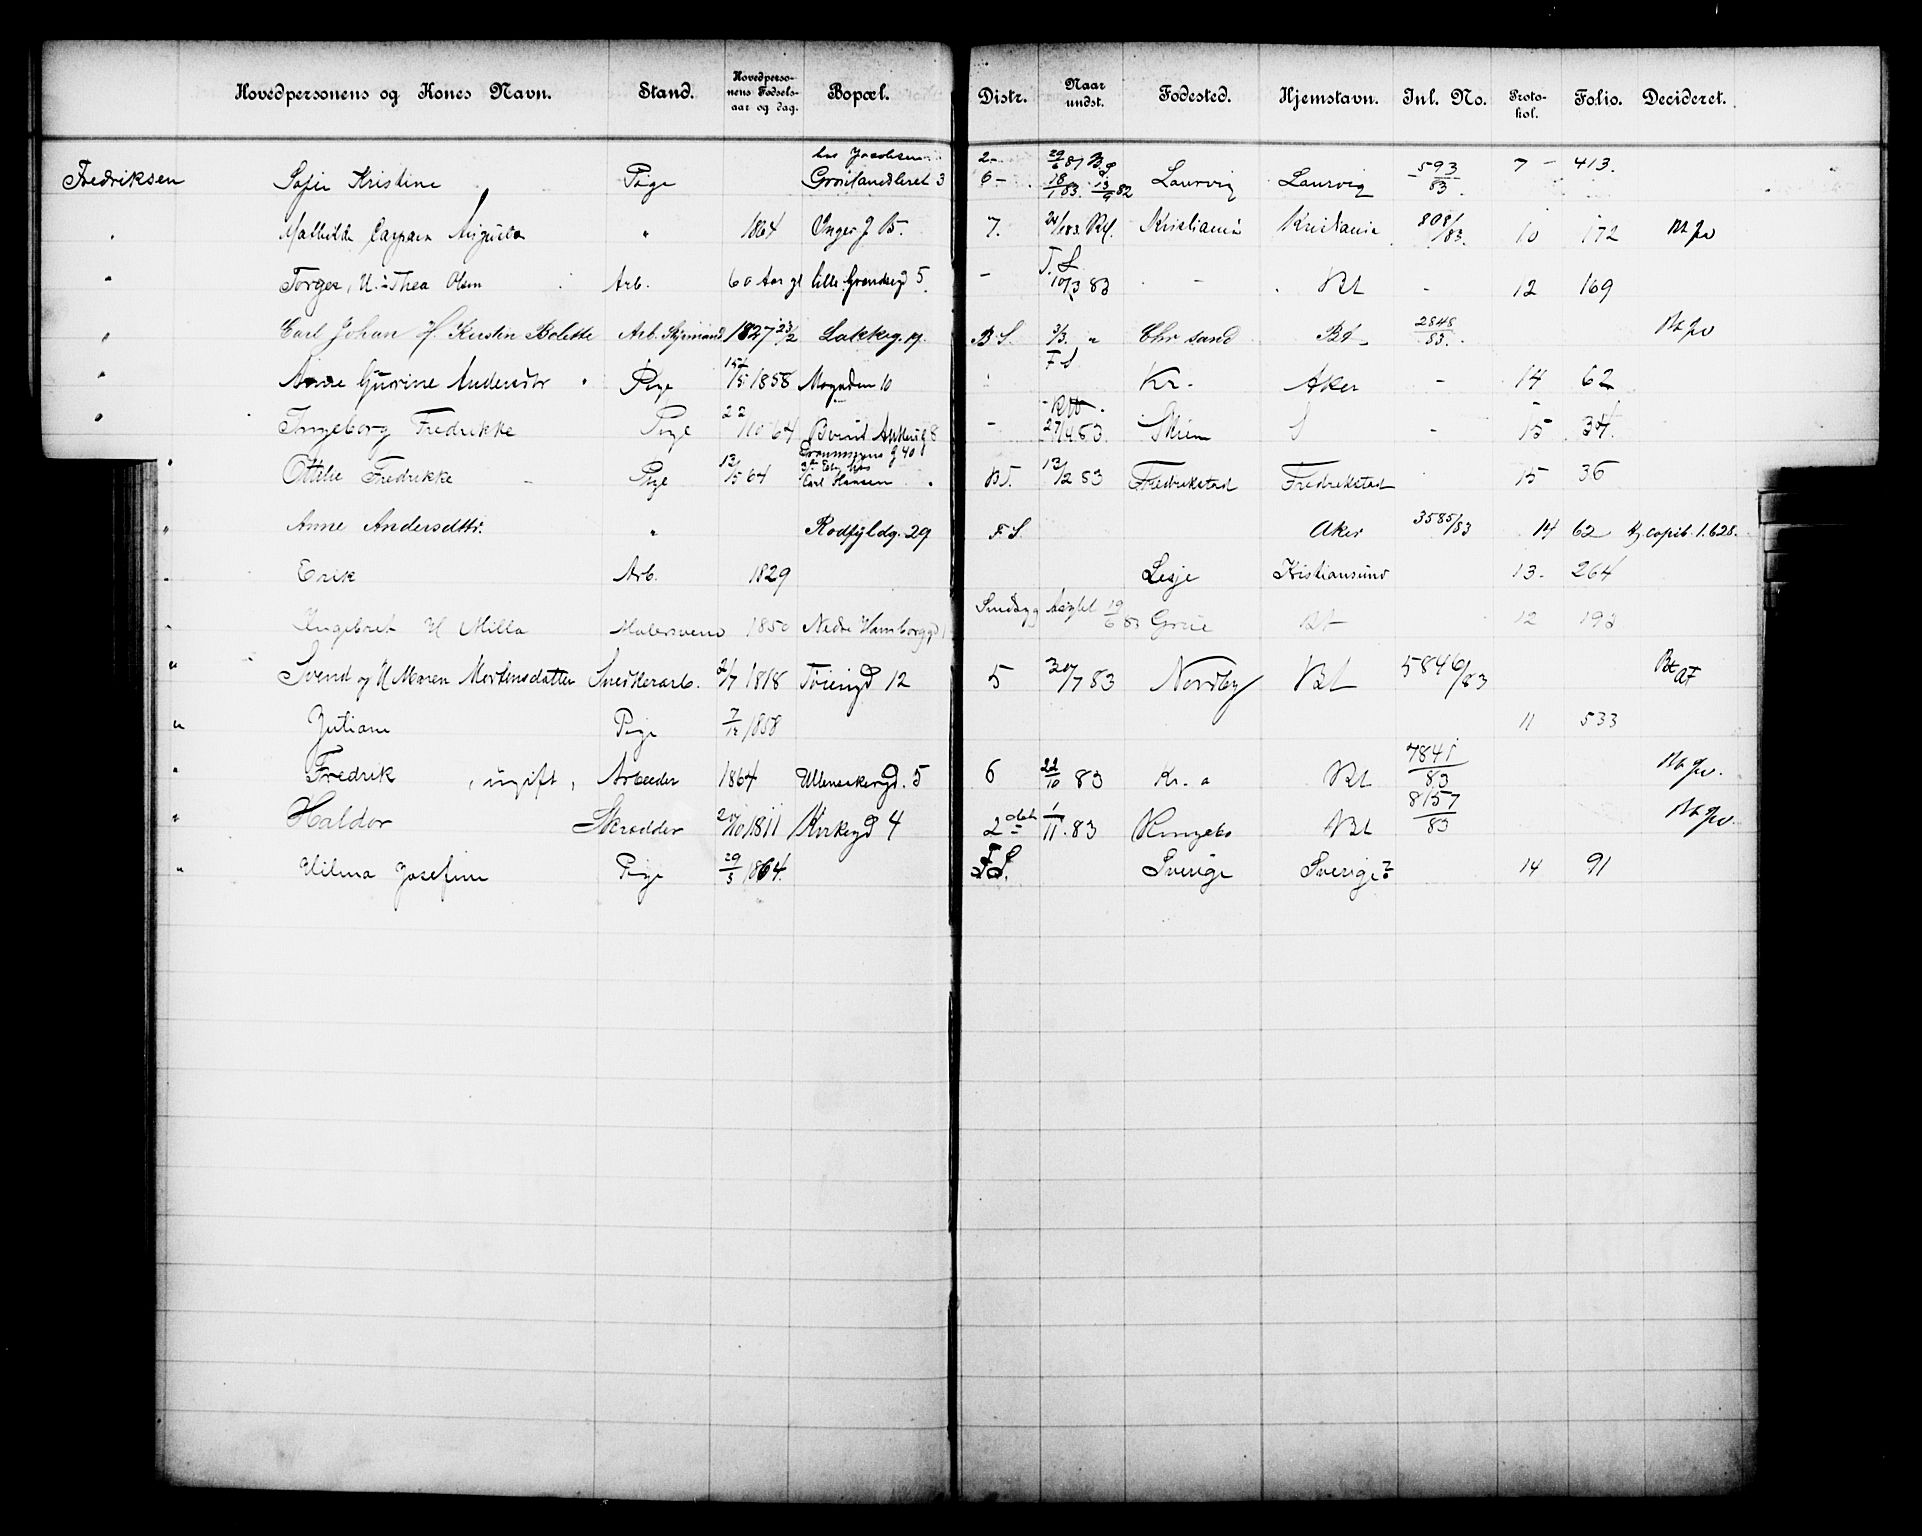 Hovedpersonens og Kones Navn. Stand. Hovedpersonens Fødselsaar og dag. Bopæl. Distr. Naar undst. Fødested. Hjemstavn. Inl. No. Protokol. Folio. Decideret.
Fredriksen Sofie Kristine Pige hos Jacobsen Grønlandsleret 3 2- 6- 18/1 83. 13/9 82 Laurvig Laurvig 593/83 7 - 413.
" Mathilde Caspara Augusta " 1864 7. Kristiania Kristiania 808/83. 10 172 Bt po
" Torger, H. Thea Olsen Arb. 60 Aar gl Lille Grændsegd 5. - F.S. 10/3 83 - Bt - 12 169
" Carl Johan H. Kirstin Bolette Arb. Styrmand 1827 23/2 Lakkeg. 19. B.S. 3/3. " Chr sand Bt 2848/83. Bt po
" Anne Gurine Andersdtr Pige 15/5 1858 Mogaden 10 F S Kr. Aker - 14 62
" Ingeborg Fredrikke Pige 22/10 64 Bernt Ankersg 8 - 27/4 83. Skien S - 15 34.
" Ottilie Fredrikke Pige 13/5 64 Grønnings g 40 3die Etg hos Carl Hansen Bt. 13/2 83 Fredrikstad Fredrikstad 15 36
" Anne Andersdtr. " Rødfyldg. 29 F.S. Aker 3585/83 14 62 copib. 1.628.
" Erik Arb. 1829 Lesje Kristiansund 13. 264
" Ingebret H Milla Malersvend 1850 Nedre Hamborggd 1 Sindsyg Asylet 19/6 83 Grue Bt 12 193
" Svend og H Maren Mortensdatter Snedkerarb. 2/7 1818 Tøiengd 12 5 30/7 83 Nordby Bt 5846/83 Bt AF
" Juliane Pige 7/12 1858 11 533
" Fredrik , ugift, Arbeider 1864 Ullensakergd. 5 6 22/10 83 Kr. a Bt 7841/83 Bt po.
" Haldor Skrædder 20/10 1811 Kirkegd 4 2 1/11. 83 Ringebo Bt 8157/83 Bt po.
" Vilma Josefine Pige 29/3 1864. F.S. Sverige Sverige? 14 91